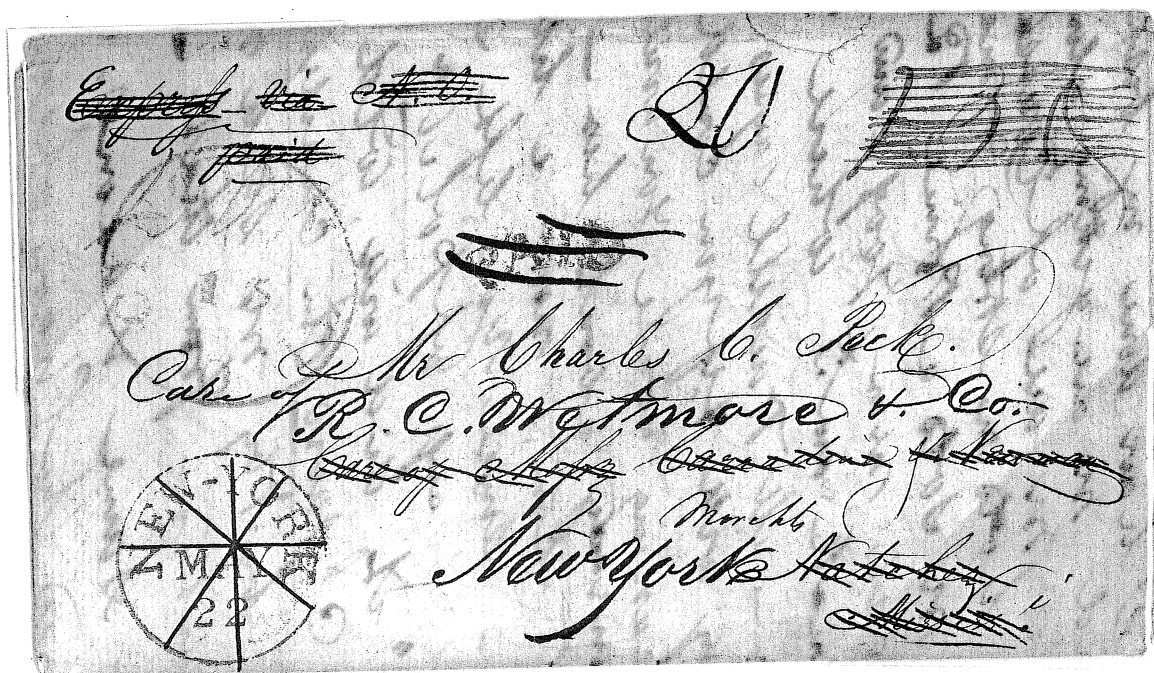 Express via N. O.
paid
20
PAID
Mr Charles C. Peck.
Care of R. C. Wetmore & Co.
Care of Messrs & Newman
Merchts
New York Natchez
Missi.
NEW-YORK
MAY
22